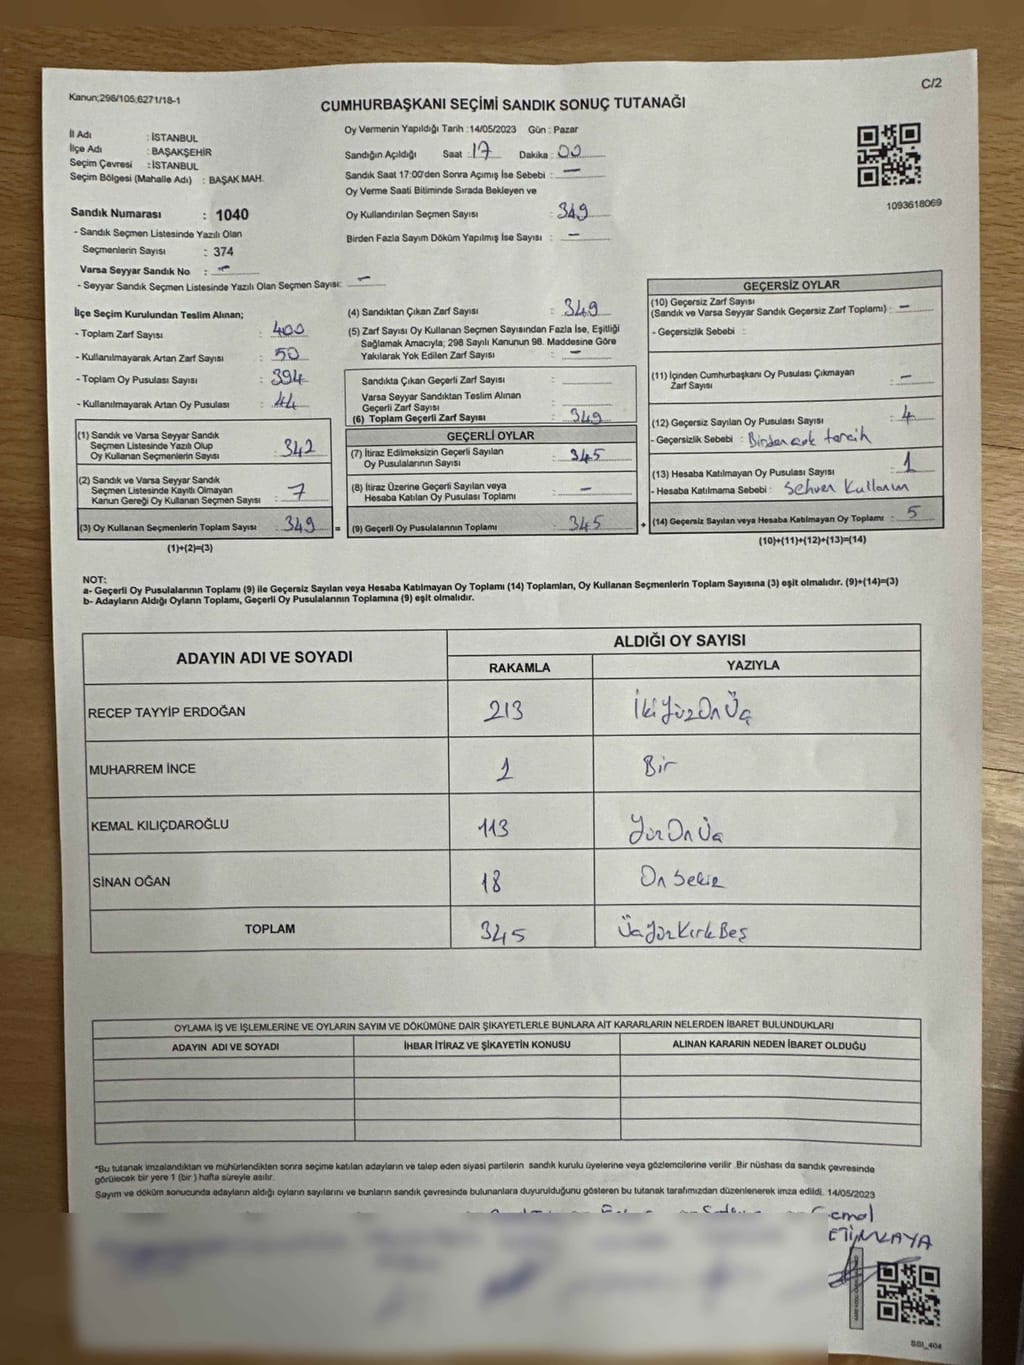 Kanun;298/105;6271/18-1
C/2
CUMHURBAŞKANI SEÇİMİ SANDIK SONUÇ TUTANAĞI
İl Adı : İSTANBUL
İlçe Adı : BAŞAKŞEHİR
Seçim Çevresi : İSTANBUL
Seçim Bölgesi (Mahalle Adı) : BAŞAK MAH.
Sandık Numarası : 1040
- Sandık Seçmen Listesinde Yazılı Olan
Seçmenlerin Sayısı : 374
Varsa Seyyar Sandık No : -
- Seyyar Sandık Seçmen Listesinde Yazılı Olan Seçmen Sayısı: -
Oy Vermenin Yapıldığı Tarih :14/05/2023 Gün : Pazar
Sandığın Açıldığı Saat : 17 Dakika : 00
Sandık Saat 17:00'den Sonra Açımış İse Sebebi : -
Oy Verme Saati Bitiminde Sırada Bekleyen ve
Oy Kullandırılan Seçmen Sayısı : 349
Birden Fazla Sayım Döküm Yapılmış İse Sayısı : -
1093618069
İlçe Seçim Kurulundan Teslim Alınan;
- Toplam Zarf Sayısı : 400
- Kullanılmayarak Artan Zarf Sayısı : 50
- Toplam Oy Pusulası Sayısı : 394
- Kullanılmayarak Artan Oy Pusulası : 44
(1) Sandık ve Varsa Seyyar Sandık
Seçmen Listesinde Yazılı Olup
Oy Kullanan Seçmenlerin Sayısı : 342
(2) Sandık ve Varsa Seyyar Sandık
Seçmen Listesinde Kayıtlı Olmayan
Kanun Gereği Oy Kullanan Seçmen Sayısı : 7
(3) Oy Kullanan Seçmenlerin Toplam Sayısı : 349 =
(1)+(2)=(3)
(4) Sandıktan Çıkan Zarf Sayısı : 349
(5) Zarf Sayısı Oy Kullanan Seçmen Sayısından Fazla İse, Eşitliği
Sağlamak Amacıyla; 298 Sayılı Kanunun 98. Maddesine Göre
Yakılarak Yok Edilen Zarf Sayısı : -
Sandıkta Çıkan Geçerli Zarf Sayısı :
Varsa Seyyar Sandıktan Teslim Alınan
Geçerli Zarf Sayısı :
(6) Toplam Geçerli Zarf Sayısı : 349
GEÇERLİ OYLAR
(7) İtiraz Edilmeksizin Geçerli Sayılan
Oy Pusulalarının Sayısı : 345
(8) İtiraz Üzerine Geçerli Sayılan veya
Hesaba Katılan Oy Pusulası Toplamı : -
(9) Geçerli Oy Pusulalarının Toplamı : 345 +
GEÇERSİZ OYLAR
(10) Geçersiz Zarf Sayısı
(Sandık ve Varsa Seyyar Sandık Geçersiz Zarf Toplamı) : -
- Geçersizlik Sebebi :
(11) İçinden Cumhurbaşkanı Oy Pusulası Çıkmayan
Zarf Sayısı : -
(12) Geçersiz Sayılan Oy Pusulası Sayısı : 4
- Geçersizlik Sebebi : Birden çok tercih
(13) Hesaba Katılmayan Oy Pusulası Sayısı : 1
- Hesaba Katılmama Sebebi : Sehven Kullanım
(14) Geçersiz Sayılan veya Hesaba Katılmayan Oy Toplamı : 5
(10)+(11)+(12)+(13)=(14)
NOT:
a- Geçerli Oy Pusulalarının Toplamı (9) ile Geçersiz Sayılan veya Hesaba Katılmayan Oy Toplamı (14) Toplamları, Oy Kullanan Seçmenlerin Toplam Sayısına (3) eşit olmalıdır. (9)+(14)=(3)
b- Adayların Aldığı Oyların Toplamı, Geçerli Oy Pusulalarının Toplamına (9) eşit olmalıdır.
ADAYIN ADI VE SOYADI
ALDIĞI OY SAYISI
RAKAMLA YAZIYLA
RECEP TAYYİP ERDOĞAN 213 İkiYüzOnÜç
MUHARREM İNCE 1 Bir
KEMAL KILIÇDAROĞLU 113 YüzOnÜç
SİNAN OĞAN 18 On Sekiz
TOPLAM 345 ÜçYüzKırkBeş
OYLAMA İŞ VE İŞLEMLERİNE VE OYLARIN SAYIM VE DÖKÜMÜNE DAİR ŞİKAYETLERLE BUNLARA AİT KARARLARIN NELERDEN İBARET BULUNDUKLARI
ADAYIN ADI VE SOYADI İHBAR İTİRAZ VE ŞİKAYETİN KONUSU ALINAN KARARIN NEDEN İBARET OLDUĞU
*Bu tutanak imzalandıktan ve mühürlendikten sonra seçime katılan adayların ve talep eden siyasi partilerin sandık kurulu üyelerine veya gözlemcilerine verilir .Bir nüshası da sandık çevresinde
görülecek bir yere 1 (bir ) hafta süreyle asılır.
Sayım ve döküm sonucunda adayların aldığı oyların sayılarını ve bunların sandık çevresinde bulunanlara duyurulduğunu gösteren bu tutanak tarafımızdan düzenlenerek imza edildi. 14/05/2023
BBI_404